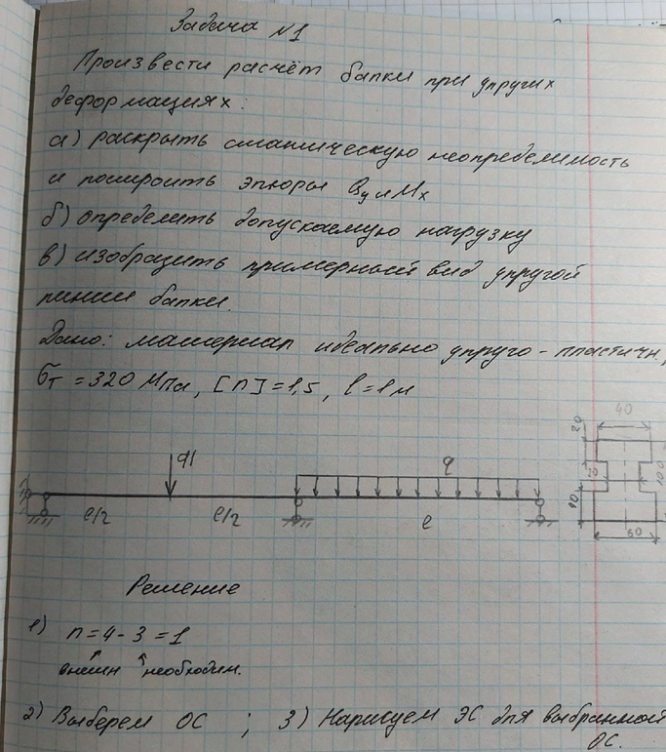 Задача №1
Произвести расчёт балки при упругих
деформациях:
а) раскрыть статическую неопределимость
и построить эпюры Qy и Mx
б) определить допускаемую нагрузку
в) изобразить примерный вид упругой
линии балки.
Дано: материал идеально упруго-пластичн.,
σт = 320 МПа, [n] = 1,5, l = 1 м
ql
q
l/2
l/2
l
40
20
100
50
Решение
1) n = 4 - 3 = 1
внешн необходим.
2) Выберем ОС ; 3) Нарисуем ЭС для выбранной
ОС.